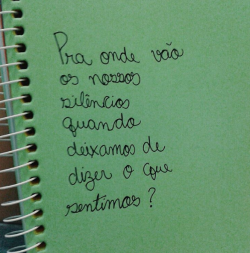 Pra onde vão
os nossos
silêncios
quando
deixamos de
dizer o que
sentimos?